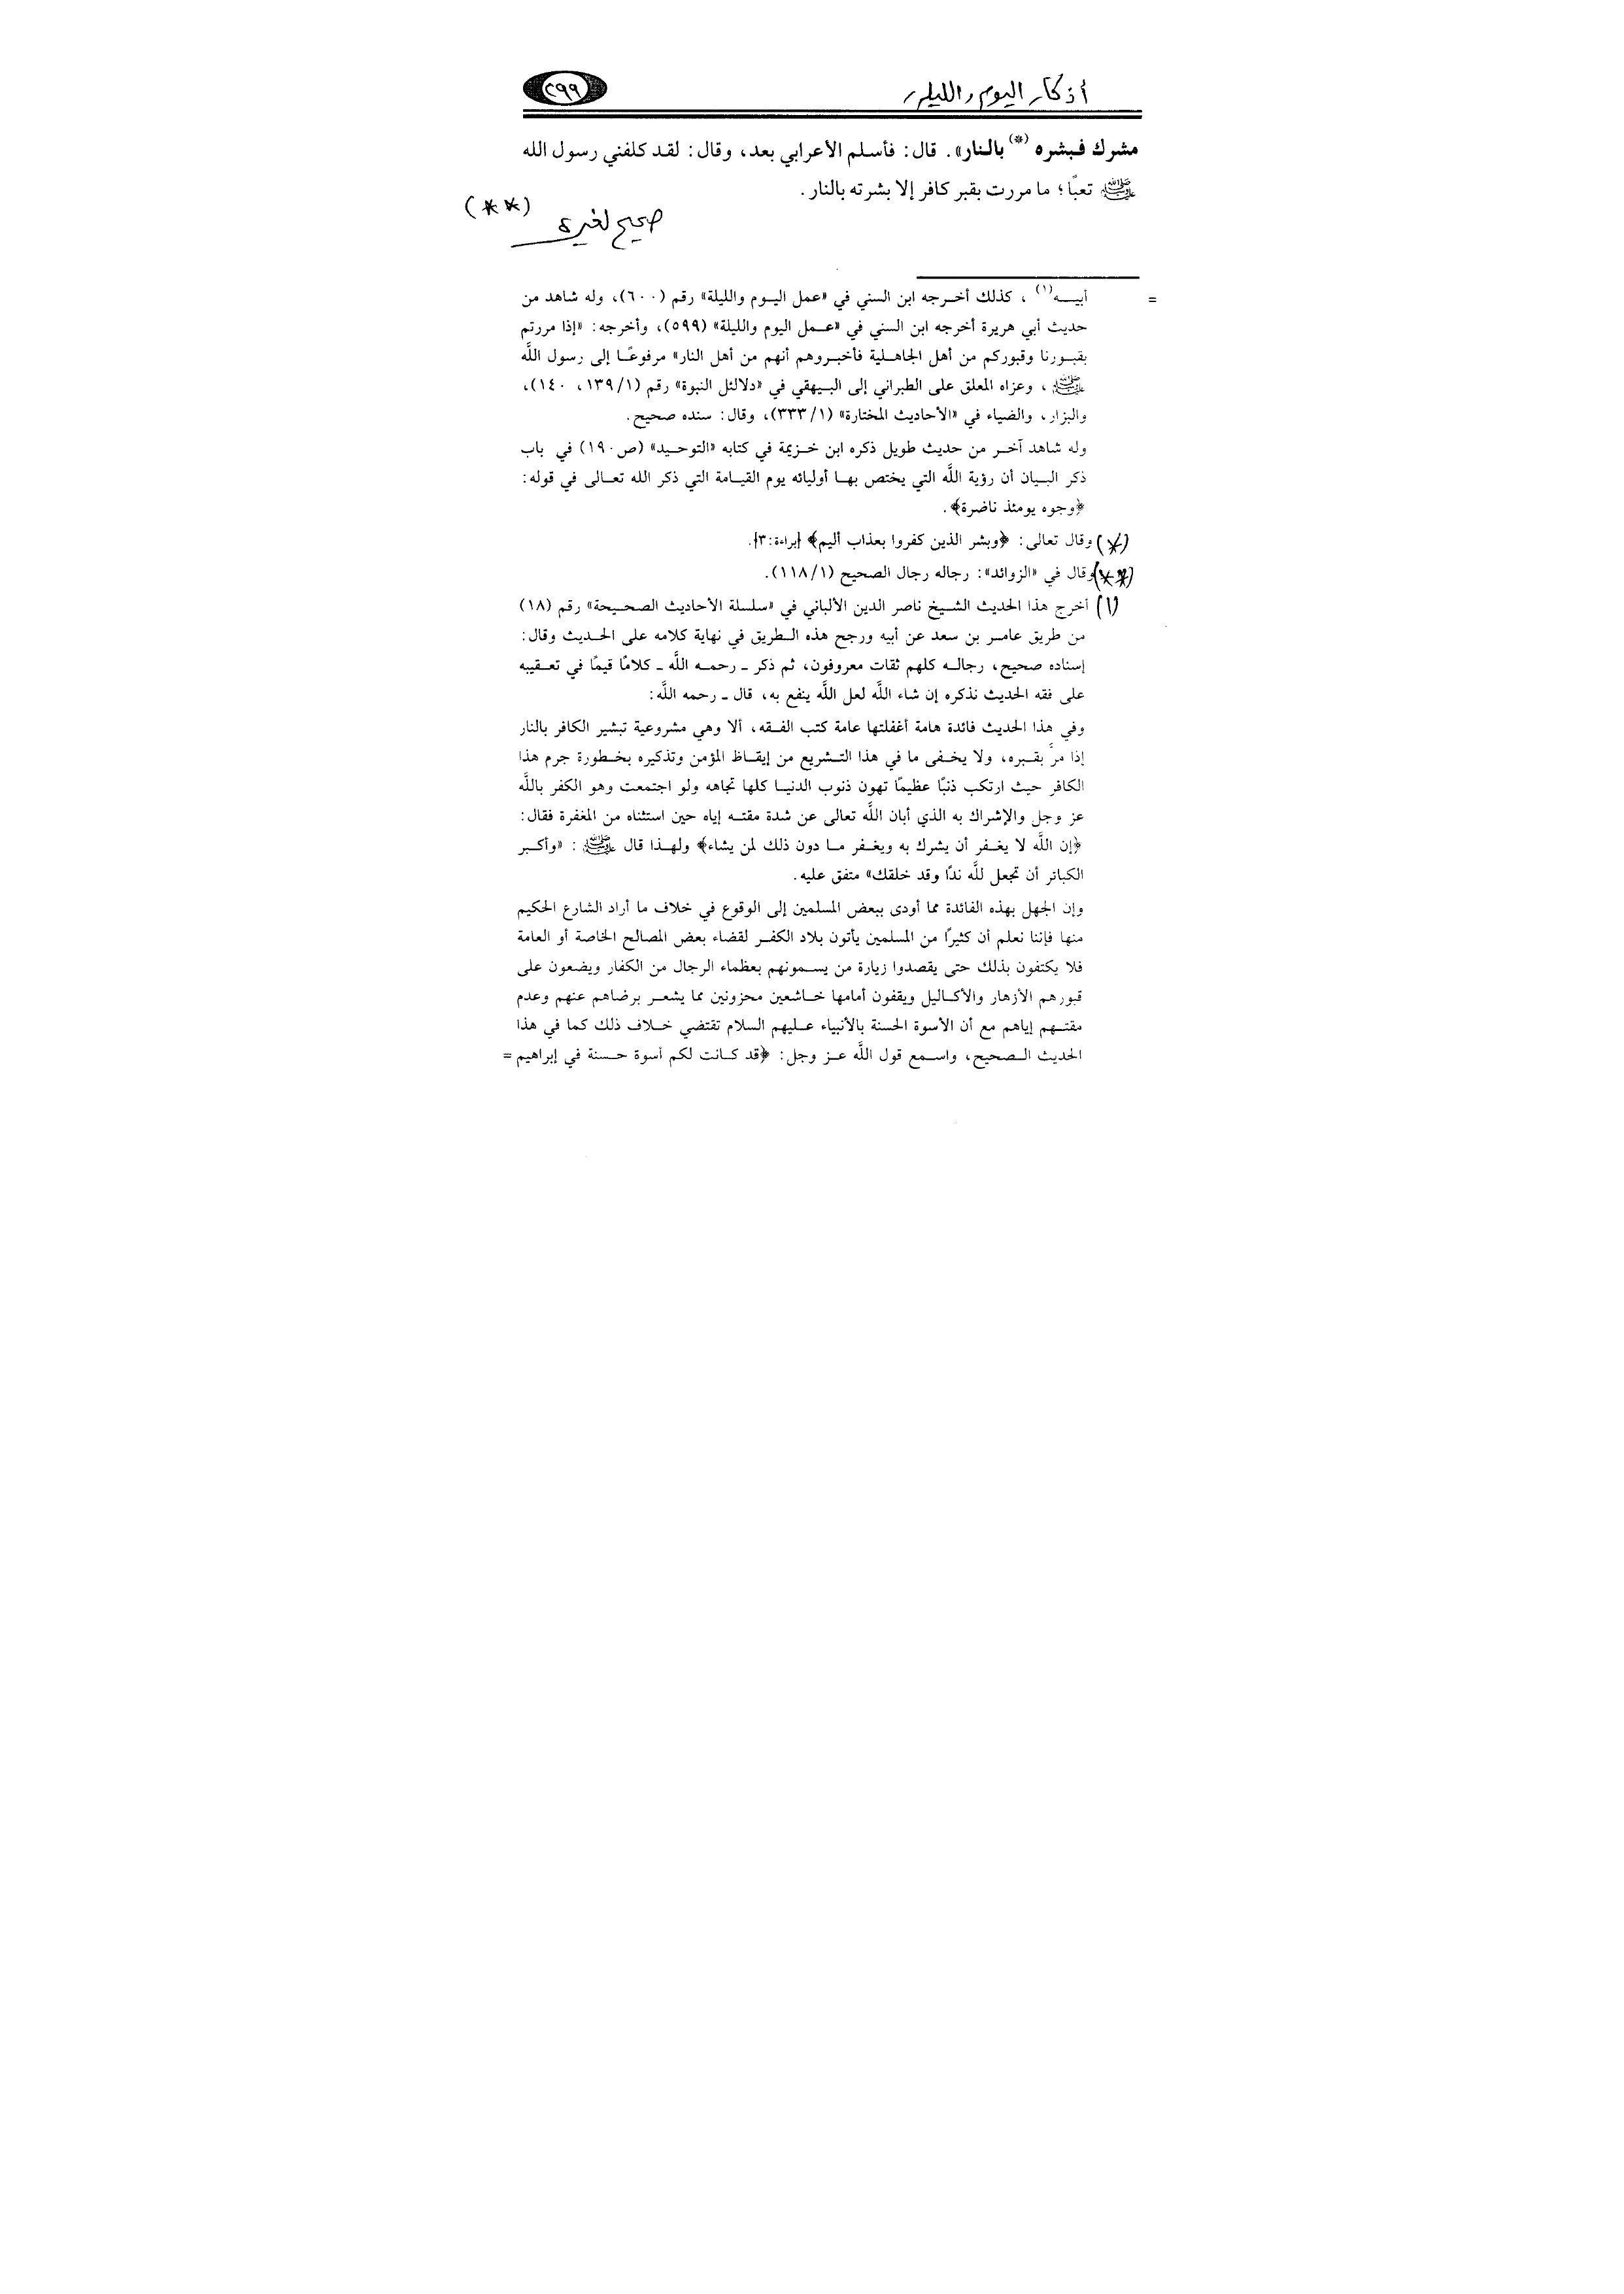 أذكار اليوم والليلة
٢٩٩
مشرك فبشره (*) بالنار» . قال : فأسلم الأعرابي بعد، وقال : لقد كلفني رسول الله
ﷺ تعبًا؛ ما مررت بقبر كافر إلا بشرته بالنار .
صحيح لغيره (**)
= أبيه(١) ، كذلك أخرجه ابن السني في «عمل اليوم والليلة» رقم (٦٠٠)، وله شاهد من
حديث أبي هريرة أخرجه ابن السني في «عمل اليوم والليلة» (٥٩٩)، وأخرجه : «إذا مررتم
بقبورنا وقبوركم من أهل الجاهلية فأخبروهم أنهم من أهل النار» مرفوعًا إلى رسول اللَّه
ﷺ ، وعزاه المعلق على الطبراني إلى البيهقي في «دلالئل النبوة» رقم (١/ ١٣٩، ١٤٠)،
والبزار، والضياء في «الأحاديث المختارة» (١/ ٣٣٣)، وقال : سنده صحيح .
وله شاهد آخر من حديث طويل ذكره ابن خزيمة في كتابه «التوحيد» (ص١٩٠) في باب
ذكر البيان أن رؤية اللَّه التي يختص بها أوليائه يوم القيامة التي ذكر الله تعالى في قوله :
﴿وجوه يومئذ ناضرة﴾ .
(*) وقال تعالى : ﴿وبشر الذين كفروا بعذاب أليم﴾ [براءة:٣].
(**) وقال في «الزوائد» : رجاله رجال الصحيح (١/ ١١٨).
(١) أخرج هذا الحديث الشيخ ناصر الدين الألباني في «سلسلة الأحاديث الصحيحة» رقم (١٨)
من طريق عامر بن سعد عن أبيه ورجح هذه الطريق في نهاية كلامه على الحديث وقال :
إسناده صحيح، رجاله كلهم ثقات معروفون، ثم ذكر ـ رحمه اللَّه ـ كلامًا قيمًا في تعقيبه
على فقه الحديث نذكره إن شاء اللَّه لعل اللَّه ينفع به، قال ـ رحمه اللَّه :
وفي هذا الحديث فائدة هامة أغفلتها عامة كتب الفقه، ألا وهي مشروعية تبشير الكافر بالنار
إذا مرَّ بقبره، ولا يخفى ما في هذا التشريع من إيقاظ المؤمن وتذكيره بخطورة جرم هذا
الكافر حيث ارتكب ذنبًا عظيمًا تهون ذنوب الدنيا كلها تجاهه ولو اجتمعت وهو الكفر باللَّه
عز وجل والإشراك به الذي أبان اللَّه تعالى عن شدة مقته إياه حين استثناه من المغفرة فقال :
﴿إن اللَّه لا يغفر أن يشرك به ويغفر ما دون ذلك لمن يشاء﴾ ولهذا قال ﷺ : «وأكبر
الكبائر أن تجعل للَّه ندًا وقد خلقك» متفق عليه .
وإن الجهل بهذه الفائدة مما أودى ببعض المسلمين إلى الوقوع في خلاف ما أراد الشارع الحكيم
منها فإننا نعلم أن كثيرًا من المسلمين يأتون بلاد الكفر لقضاء بعض المصالح الخاصة أو العامة
فلا يكتفون بذلك حتى يقصدوا زيارة من يسمونهم بعظماء الرجال من الكفار ويضعون على
قبورهم الأزهار والأكاليل ويقفون أمامها خاشعين محزونين مما يشعر برضاهم عنهم وعدم
مقتهم إياهم مع أن الأسوة الحسنة بالأنبياء عليهم السلام تقتضي خلاف ذلك كما في هذا
الحديث الصحيح، واسمع قول اللَّه عز وجل : ﴿قد كانت لكم أسوة حسنة في إبراهيم =